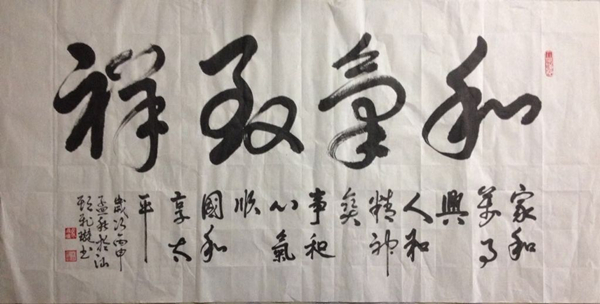 和氣致祥
家和
萬事
興
人和
精神
爽
事和
心氣
順
國和
享太
平
歲次丙申
孟秋於汕